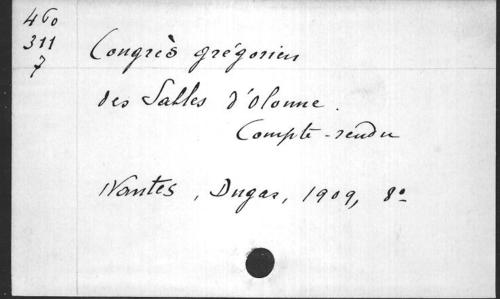 460
311
7
Congrès grégorien
des Sables d'Olonne.
Compte-rendu
Nantes, Dugas, 1909, 8º